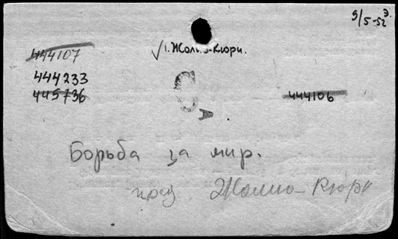 9/5-52
√1. Жолио-Кюри.
444107
444233
445736
444106
А
Борьба за мир.
Жолио-Кюри